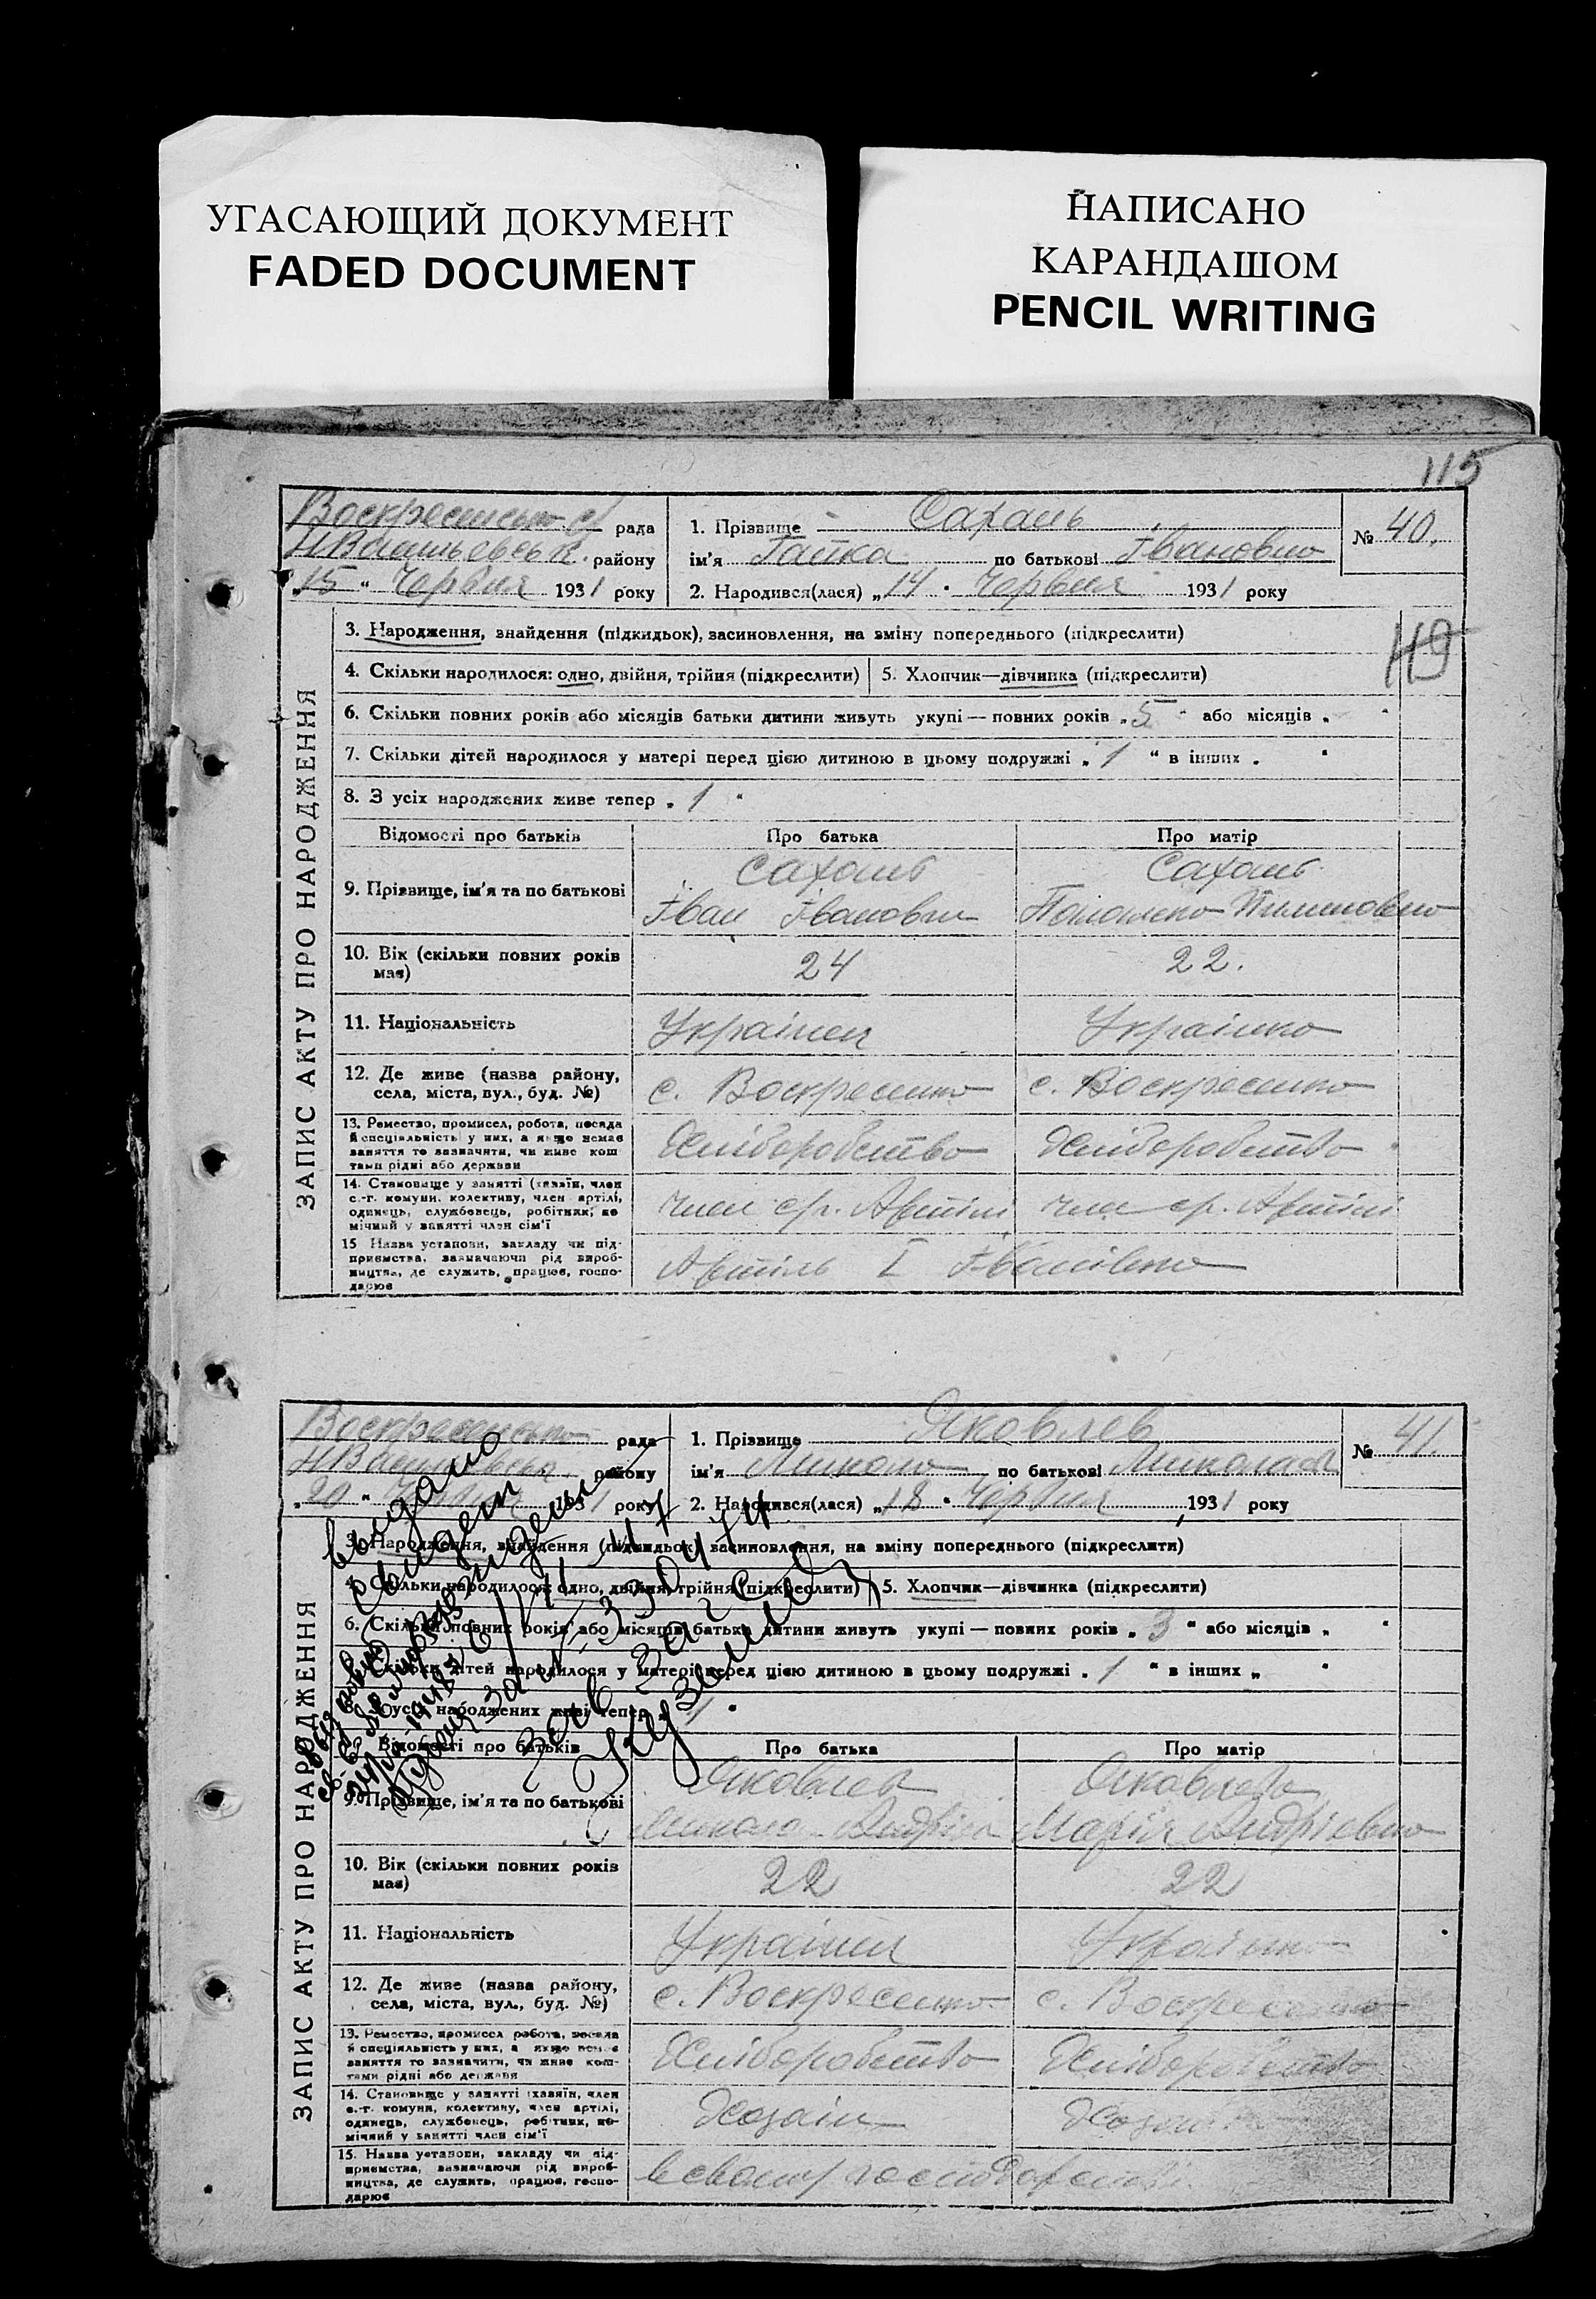 УГАСАЮЩИЙ ДОКУМЕНТ
FADED DOCUMENT
НАПИСАНО
КАРАНДАШОМ
PENCIL WRITING
115
рада
району
„15“ Червня 1931 року
1. Прізвище Сахань
ім'я Гапка по батькові Івановна
2. Народився(лася) „14“ Червня 1931 року
№ 40.
ЗАПИС АКТУ ПРО НАРОДЖЕННЯ
3. Народження, знайдення (підкидьок), засиновлення, на зміну попереднього (підкреслити)
4. Скільки народилося: одно, двійня, трійня (підкреслити)
5. Хлопчик—дівчинка (підкреслити)
6. Скільки повних років або місяців батьки дитини живуть укупі — повних років „5“ або місяців „ “
7. Скільки дітей народилося у матері перед цією дитиною в цьому подружжі „1“ в інших „ “
8. З усіх народжених живе тепер „1“
Відомості про батьків
Про батька
Про матір
9. Прізвище, ім'я та по батькові
Сахань
Іван
Сахань
10. Вік (скільки повних років
має)
24
22.
11. Національність
Українец
Українка
12. Де живе (назва району,
села, міста, вул., буд. №)
с. Воскресенка
с. Воскресенка
13. Ремество, промисел, робота, посада
й спеціяльність у них, а якщо немає
заняття то зазначити, чи живе кош-
тами рідні або держави
Хліборобство
Хліборобство
14. Становище у занятті (хазяїн, член
с.-г. комуни, колективу, член артілі,
одинець, службовець, робітник, по-
мічний у занятті член сім'ї
член Артілі
член Артілі
15 Назва установи, закладу чи під-
приємства, зазначаючи рід вироб-
ництва, де служить, працює, госпо-
дарює
Артіль
рада
району
„20“ Червня 1931 року
1. Прізвище Яковлев
ім'я Микола по батькові
2. Народився(лася) „18“ Червня 1931 року
№ 41.
ЗАПИС АКТУ ПРО НАРОДЖЕННЯ
3. Народження, знайдення (підкидьок) засиновлення, на зміну попереднього (підкреслити)
4. Скільки народилося: одно, двійня, трійня (підкреслити)
5. Хлопчик—дівчинка (підкреслити)
6. Скільки повних років або місяців батьки дитини живуть укупі — повних років „3“ або місяців „ “
7. Скільки дітей народилося у матері перед цією дитиною в цьому подружжі „1“ в інших „ “
8. З усіх народжених живе тепер „1“
Відомості про батьків
Про батька
Про матір
9. Прізвище, ім'я та по батькові
Яковлев
Микола
Яковлева
Марія Андрієвна
10. Вік (скільки повних років
має)
22
22
11. Національність
Українец
Українка
12. Де живе (назва району,
села, міста, вул., буд. №)
с. Воскресенка
с. Воскресенка
13. Ремество, промисел робота, посада
й спеціяльність у них, а якщо немає
заняття то зазначити, чи живе кош-
тами рідні або держави
Хліборобство
Хліборобство
14. Становище у занятті (хазяїн, член
с.-г. комуни, колективу, член артілі,
одинець, службовець, робітник, по-
мічний у занятті член сім'ї
Хозаін
15. Назва установи, закладу чи під-
приємства, зазначаючи рід вироб-
ництва, де служить, працює, госпо-
дарює